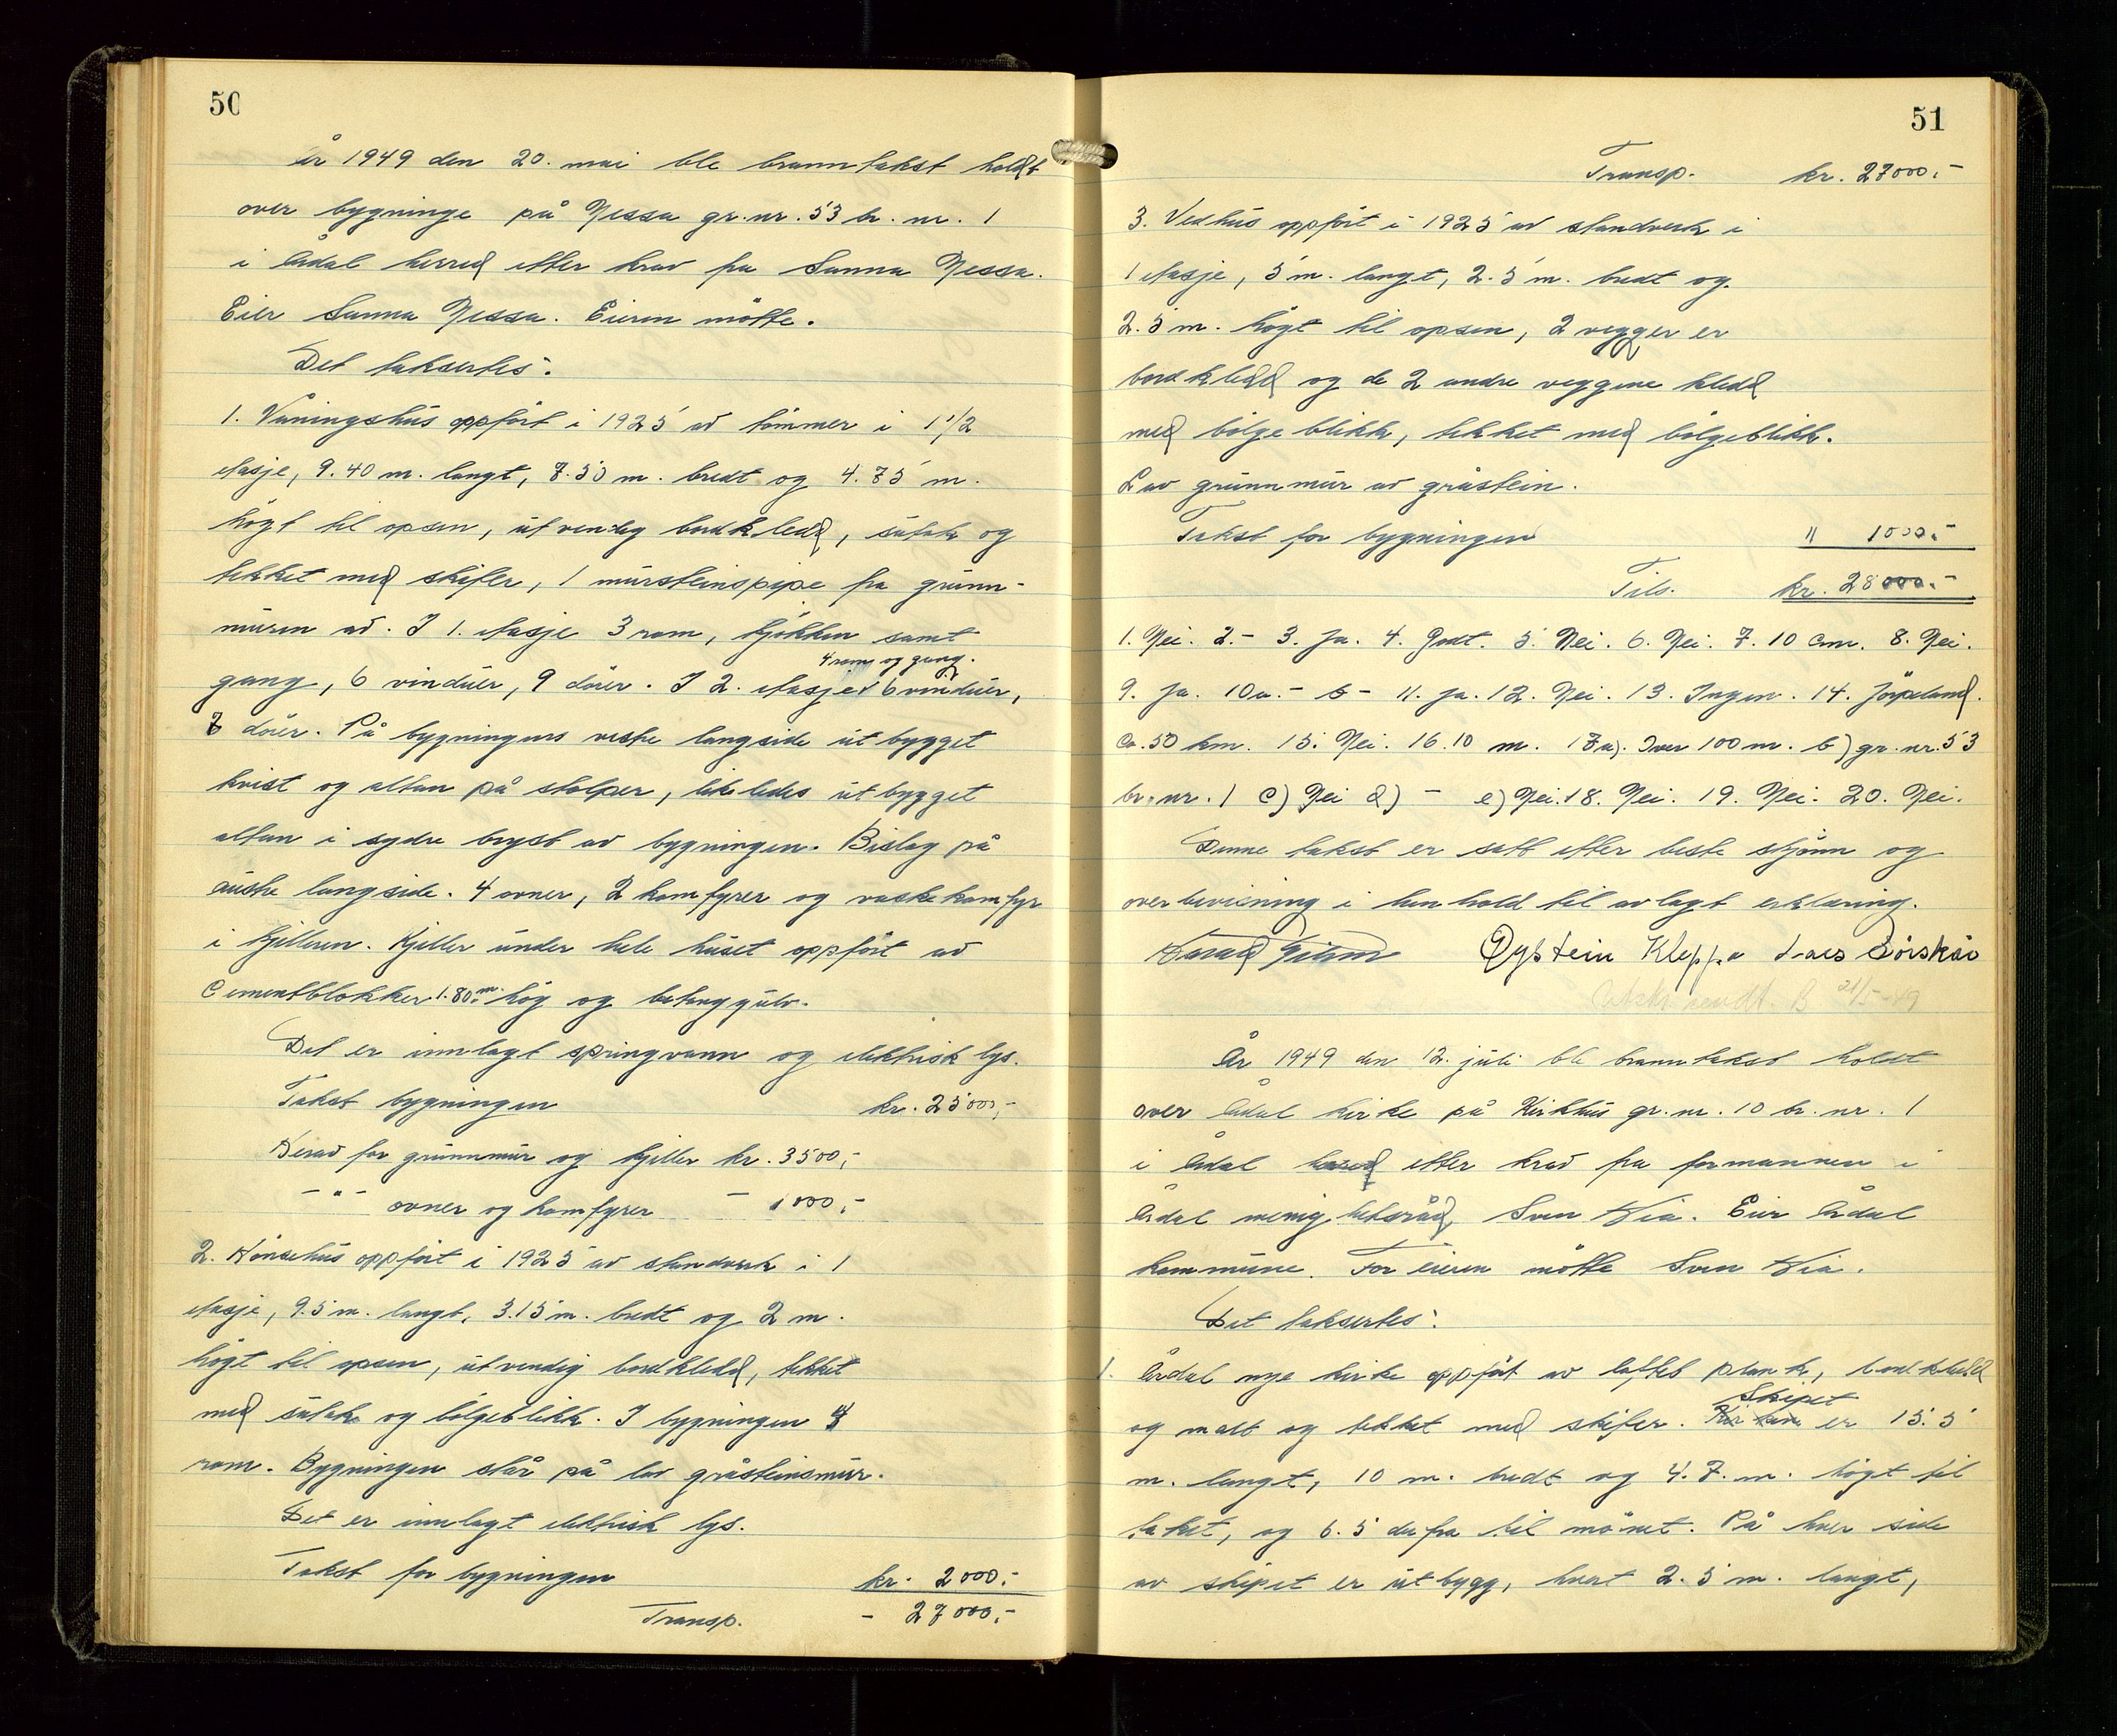 50
År 1949 den 20. mai ble branntakst holdt
over bygninge på Nessa gr.nr. 53 br. nr. 1
i Årdal herred etter krav fra Sanna Nessa.
Eier Sanna Nessa. Eieren møtte.
Det taksertes:
1. Våningshus oppført i 1925 av tømmer i 1 1/2
etasje, 9.40 m. langt, 7.50 m. bredt og 4.75 m.
høgt til opsen, utvendig bordkledd, sutak og
tekket med skifer, 1 mursteinspipe fra grunn-
muren av. I 1. etasje 3 rom, kjøkken samt
4 rom og gang.
gang, 6 vinduer, 9 dører. I 2. etasje 6 vinduer,
dører. På bygningens vestre langside utbygget
kvist og altan på stolper, likeledes utbygget
altan i sydre bryst av bygningen. Bislag på
austre langside. 4 ovner, 2 komfyrer og vaskekomfyr
i kjelleren. Kjeller under hele huset oppført av
Cementblokker 1.80 m. høg og betonggulv.
Det er innlagt springvann og elektrisk lys.
Takst bygningen kr. 25000,-
Herav for grunnmur og kjeller kr. 3500,-
-"- ovner og komfyrer - 1000,-
2. Hønsehus oppført i 1925 av standverk i 1
etasje, 9.5 m. langt, 3.15 m. bredt og 2 m.
høgt til opsen, utvendig bordkledd, tekket
med sutak og bølgeblikk. I bygningen 4
rom. Bygningen står på lav gråsteinsmur.
Det er innlagt elektrisk lys.
Takst for bygningen kr. 2000,-
Transp. - 27000,-
51
Transp. kr. 27000,-
3. Vedhus oppført i 1925 av standverk i
1 etasje, 5 m. langt, 2.5 m. bredt og
2.5 m. høgt til opsen, 2 vegger er
bordkledd og de 2 andre veggene kledd
med bølgeblikk, tekket med bølgeblikk.
Lav grunnmur av gråstein.
Takst for bygningen " 1000,-
Tils. kr. 28000,-
1. Nei. 2.- 3. Ja. 4. Godt. 5. Nei. 6. Nei. 7. 10 cm. 8. Nei.
9. Ja. 10a.- b- 11. Ja. 12. Nei. 13. Ingen. 14. Jørpeland.
Ca. 50 km. 15. Nei. 16. 10 m. 17a). Over 100 m. b) gr.nr. 53
br.nr. 1 c) Nei d) - e) Nei. 18. Nei. 19. Nei. 20. Nei.
Denne takst er satt etter beste skjønn og
overbevisning i henhold til avlagt erklæring.
Øystein Kleppa Lars Sørskår
21/5-49
År 1949 den 12. juli ble branntakst holdt
over Årdal kirke på Kirkhus gr.nr. 10 br. nr. 1
i Årdal herred etter krav fra formannen i
Årdal menighetsråd, Sven Hia. Eier Årdal
kommune. For eieren møtte Sven Hia.
Det taksertes:
1. Årdal nye kirke oppført av laftet plank, bordkledd
Skipet
og malt og tekket med skifer. Kirken er 15.5
m. langt, 10 m. bredt og 4.7. m. høgt til
taket, og 6.5 derfra til mønet. På hver side
av skipet er utbygg, hvert 2.5 m. langt,